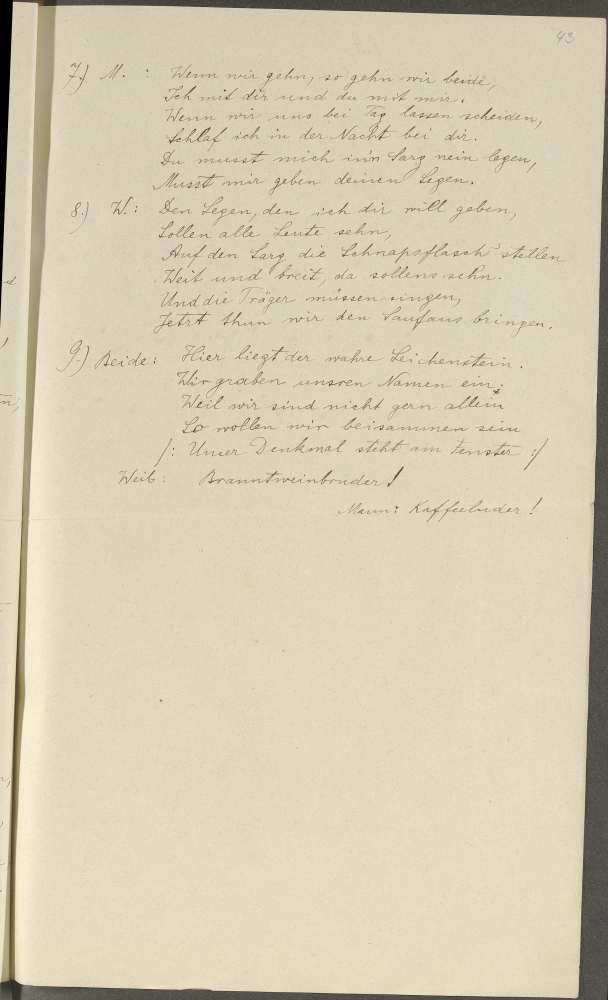 43
7.) M. : Wenn wir gehn, so gehn wir beide,
Ich mit dir und du mit mir.
Wenn wir uns bei Tag lassen scheiden,
Schlaf ich in der Nacht bei dir.
Du musst mich in'n Sarg nein legen,
Musst mir geben deinen Segen.
8.) W.: Den Segen, den ich dir will geben,
Sollen alle Leute sehn,
Auf den Sarg die Schnapsflasch' stellen
Weit und breit, da sollens sehn.
Und die Träger müssen singen,
Jetzt thun wir den Saufaus bringen.
9.) Beide: Hier liegt der wahre Leichenstein.
Wir graben unsren Namen ein.
Weil wir sind nicht gern allein
So wollen wir beisammen sein
/: Unser Denkmal steht am Fenster :/
Weib: Branntweinbruder!
Mann: Kaffeeluder!